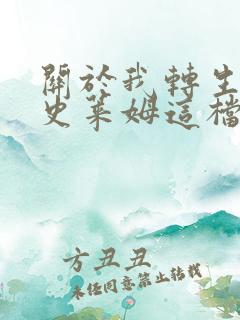 關於我轉生
史萊姆這檔
方丑丑
未经同意禁止转载